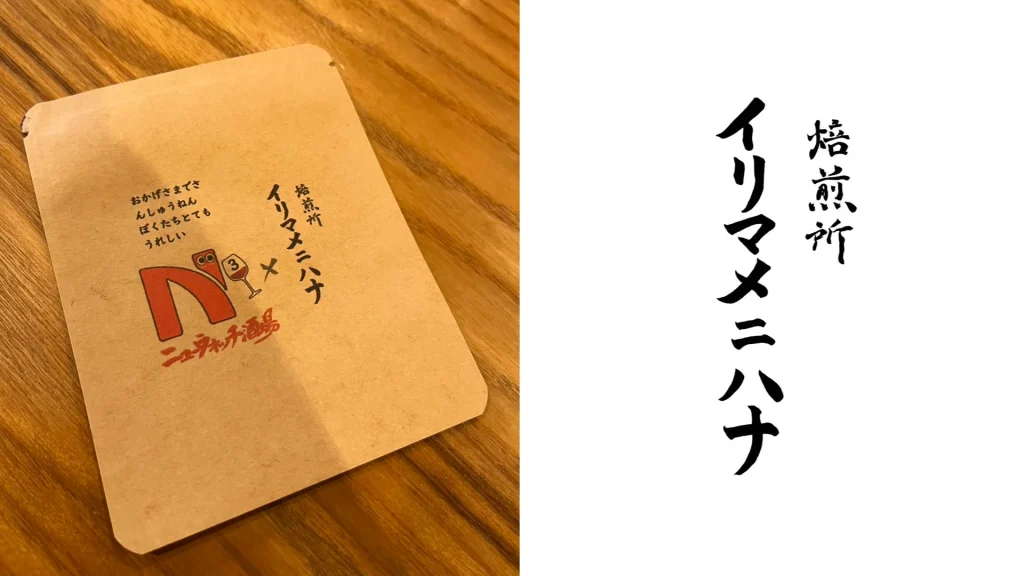 おかげさまでさ
んしゅうねん
ぼくたちとても
うれしい
3
×
焙煎所
イリマメニハナ
ニューラッキー酒場
焙煎所
イリマメニハナ